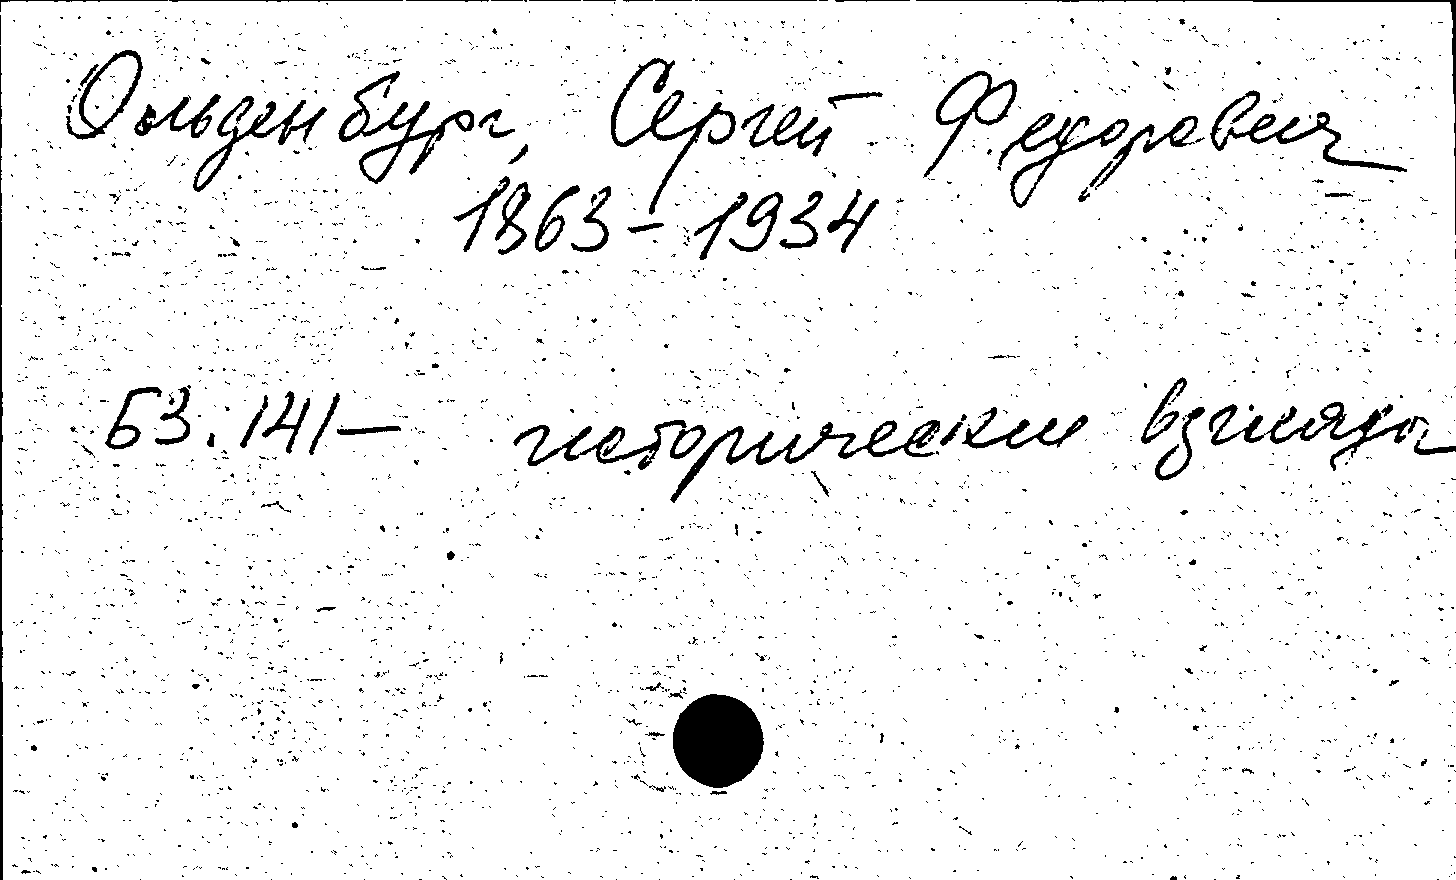 Ольденбург, Сергей Федорович
1863-1934
Б3.141- исторические взгляды